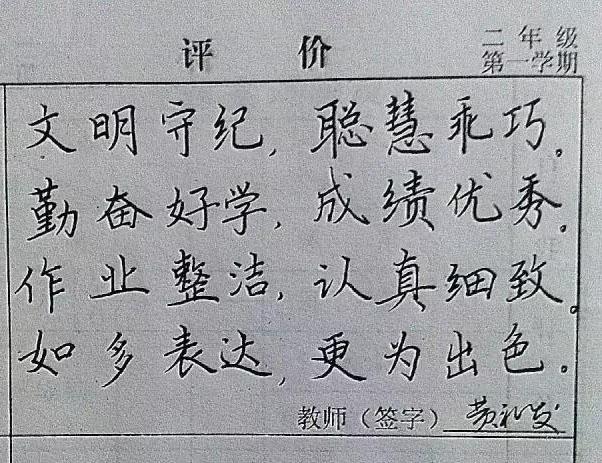 评 价
二年级
第一学期
文明守纪，聪慧乖巧。
勤奋好学，成绩优秀。
作业整洁，认真细致。
如多表达，更为出色。
教师（签字）